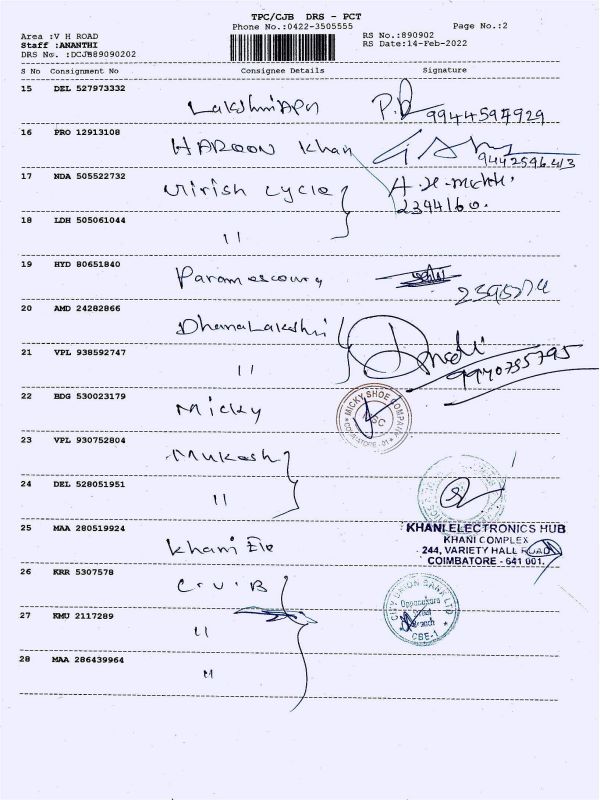 TPC/CJB DRS - PCT
Phone No.:0422-3505555
Page No.:2
Area :V H ROAD
Staff :ANANTHI
DRS No. :DCJB89090202
RS No.:890902
RS Date:14-Feb-2022
S No Consignment No Consignee Details Signature
15 DEL 527973332 Lakshmi APN
16 PRO 12913108 HAROON Khan
17 NDA 505522732 cycle
2394160.
18 LDH 505061044 "
19 HYD 80651840
20 AMD 24282866 DhanaLakshmi
21 VPL 938592747 "
9940735795
22 BDG 530023179 Micky
MICKY SHOE COMPANY
MSC
COIMBATORE - 01
23 VPL 930752804 Mukesh
24 DEL 528051951 "
25 MAA 280519924 Khani Ele
KHANI ELECTRONICS HUB
KHANI COMPLEX
244, VARIETY HALL ROAD
COIMBATORE - 641 001.
26 KRR 5307578 C.U.B
CITY UNION BANK LTD
Oppanakara
Street
Branch
CBE-1
27 KMU 2117289 "
28 MAA 286439964 "